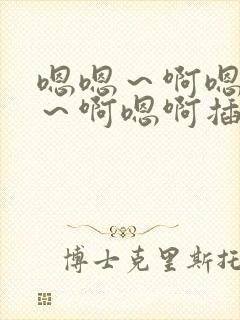 嗯嗯～啊嗯
～啊嗯啊插
博士克里斯托